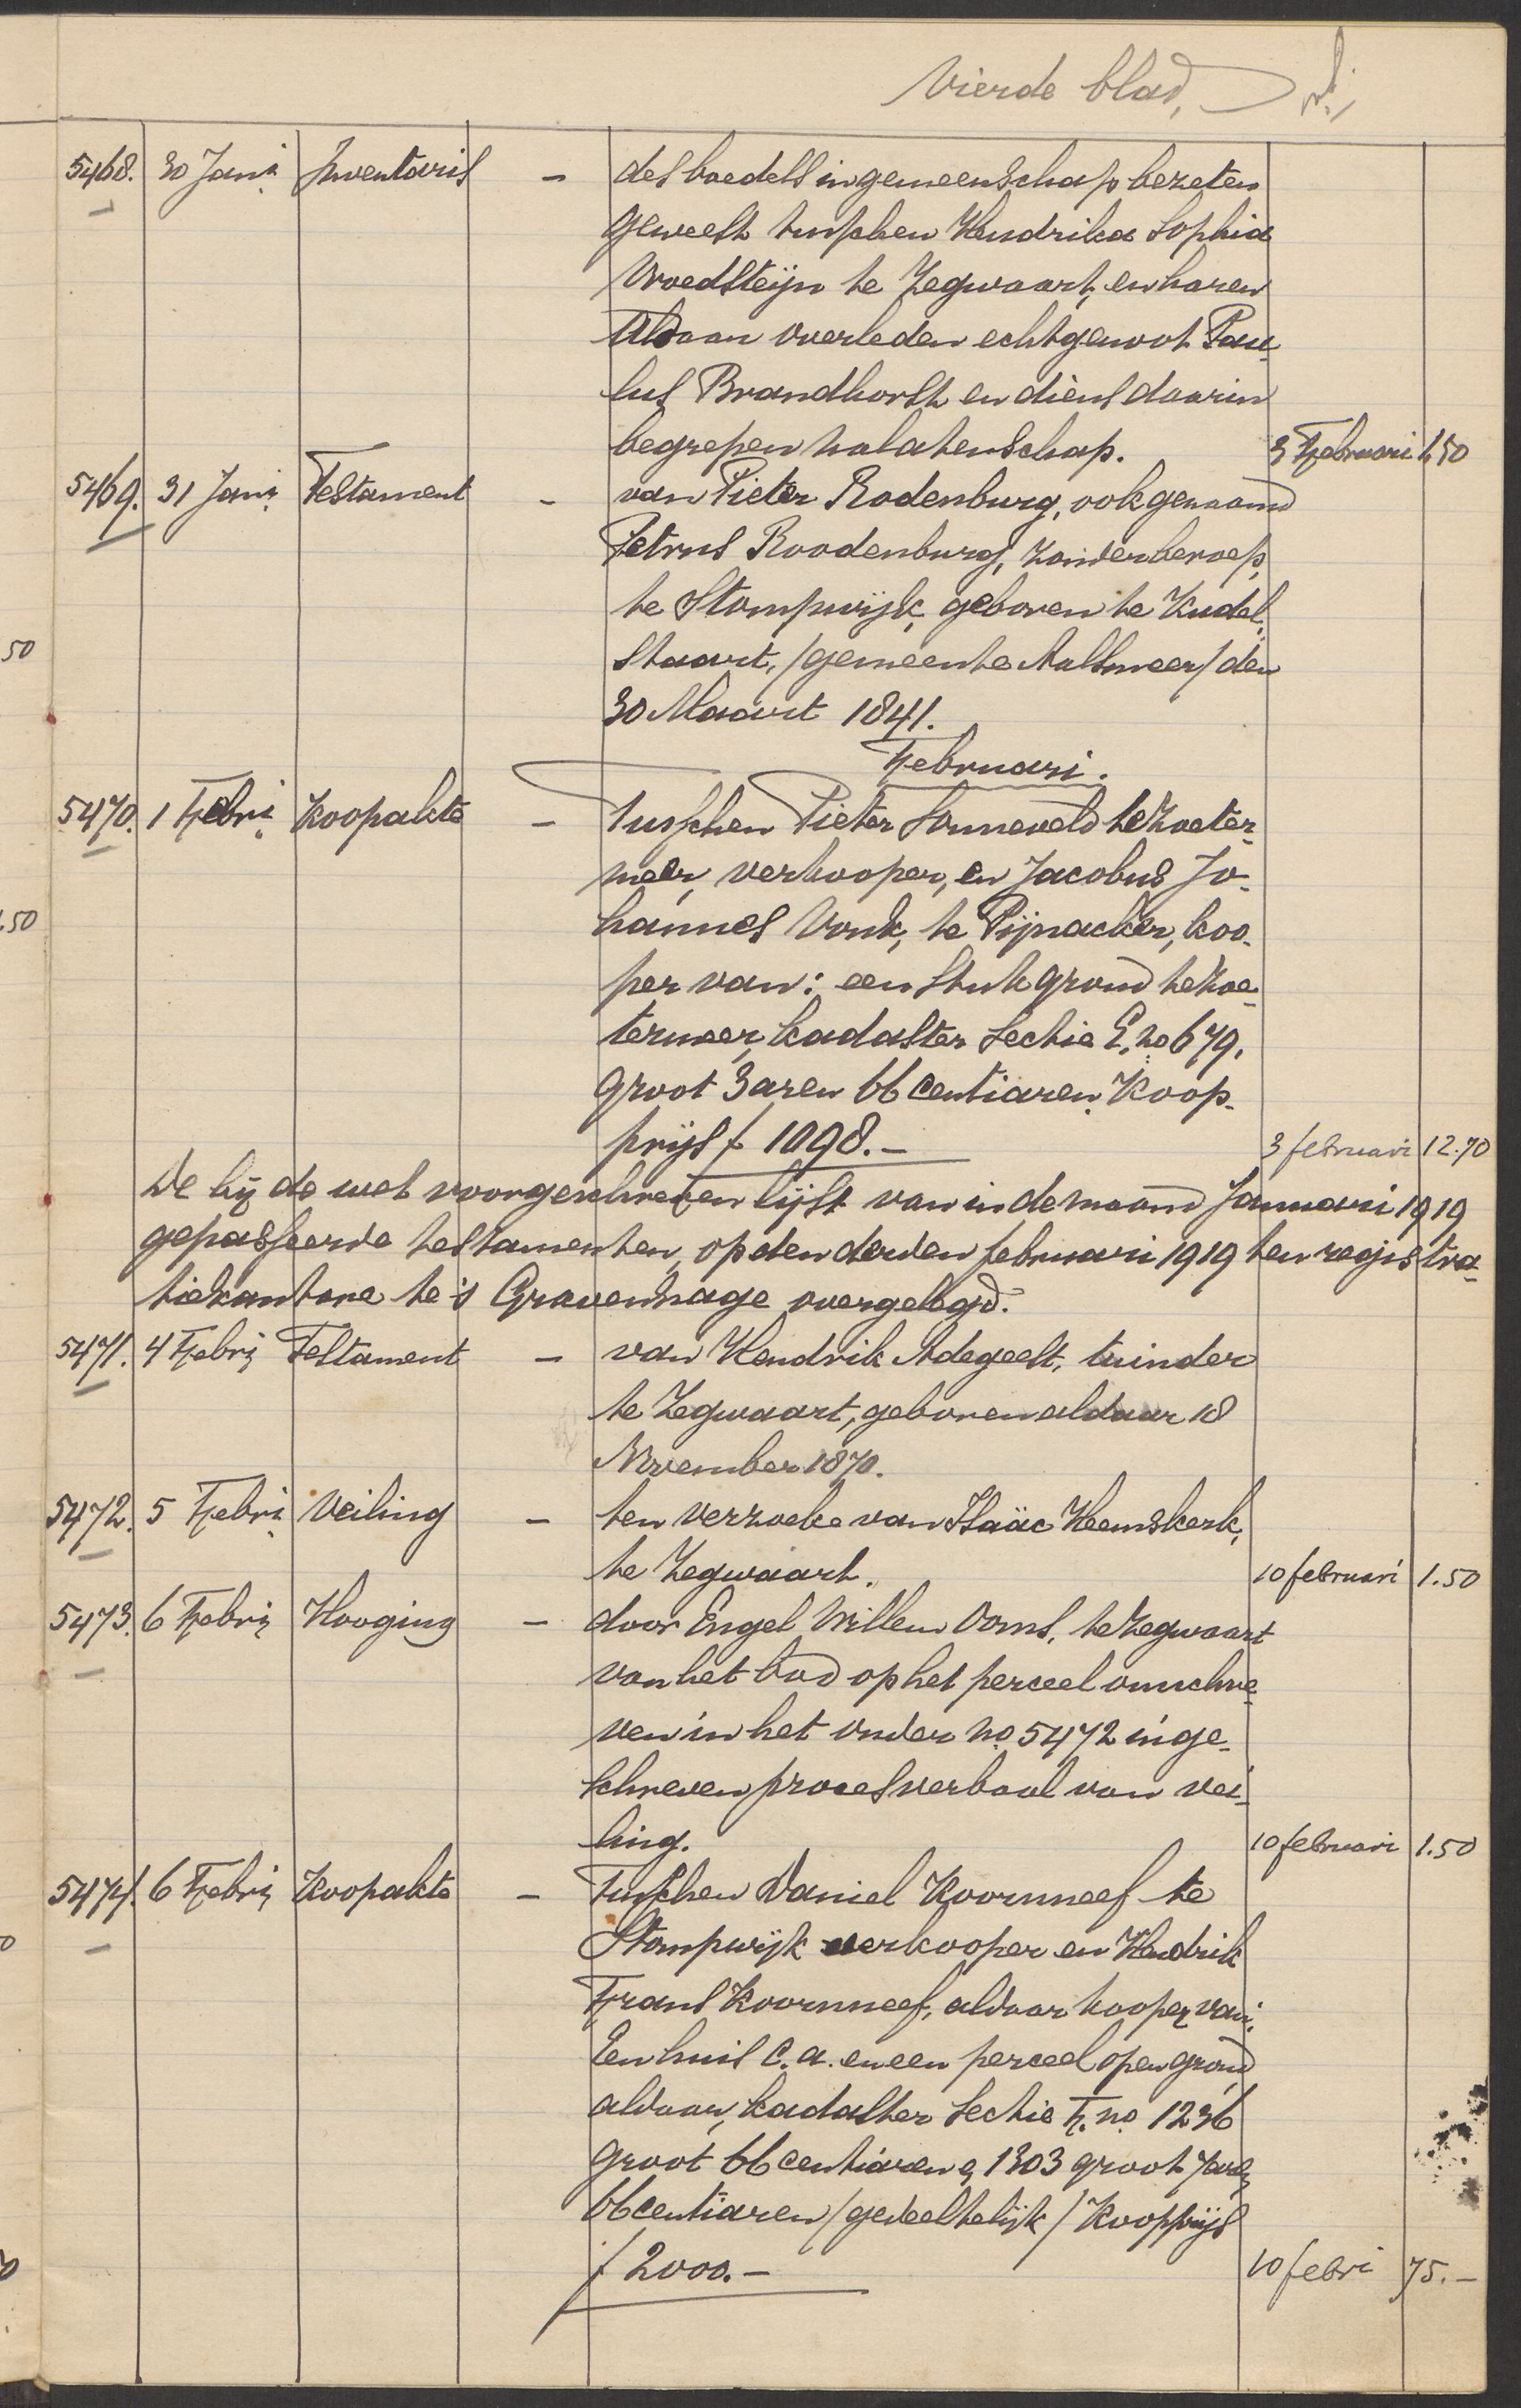 Vierde blad,
5468. 30 Jani Inventaris - des boedels in gemeenschap bezeten
geweest tusschen Hendrika Sophia
Vroedsteijn te Zegwaart, en haren
aldaar overleden echtgenoot Pau-
lus Brandhorst en diens daarin
begrepen nalatenschap. 3 Februari 1.50
5469. 31 Jani Testament - van Pieter Rodenburg, ook genaamd
Petrus Roodenburg, zonder beroep,
te Stompwijk, geboren te Kudel-
staart, /gemeente Aalsmeer/ den
50
30 Maart 1841.
Februari.
5470. 1 Febri Koopakte - Tusschen Pieter Sonneveld te Zoeter-
meer, verkooper, en Jacobus Jo-
.50
hannes Vonk, te Pijnacker, koo-
per van: een stuk grond te Zoe-
termeer, kadaster Sectie E, no 679,
groot 3 aren 66 centiaren. Koop-
prijs f 1098.- 3 februari 12.70
De bij de wet voorgeschreven lijst van in de maand Januari 1919
gepasseerde testamenten, op den derden februari 1919 ten registra-
tiekantore te 's Gravenhage overgelegd.
5471. 4 Febri Testament - van Hendrik Adegeest, tuinder
te Zegwaart, geboren aldaar 18
November 1870.
5472. 5 Febri Veiling - ten verzoeke van Isaäc Heemskerk,
te Zegwaart. 10 februari 1.50
5473. 6 Febri Hooging - door Engel Willem Ooms, te Zegwaart
van het bod op het perceel omschre-
ven in het onder no. 5472 inge-
schreven procesverbaal van vei-
ling. 10 februari 1.50
5474. 6 Febri Koopakte - Tusschen Daniel Koornneef te
Stompwijk verkooper en Hendrik
Frans Koornneef, aldaar kooper, van:
Een huis c.a. en een perceel open grond
aldaar, kadaster Sectie F. no. 1236
groot 66 centiaren en 1303 groot 7 aren
66 centiaren /gedeeltelijk/ Koopprijs
f 2000.- 10 febri 75.-